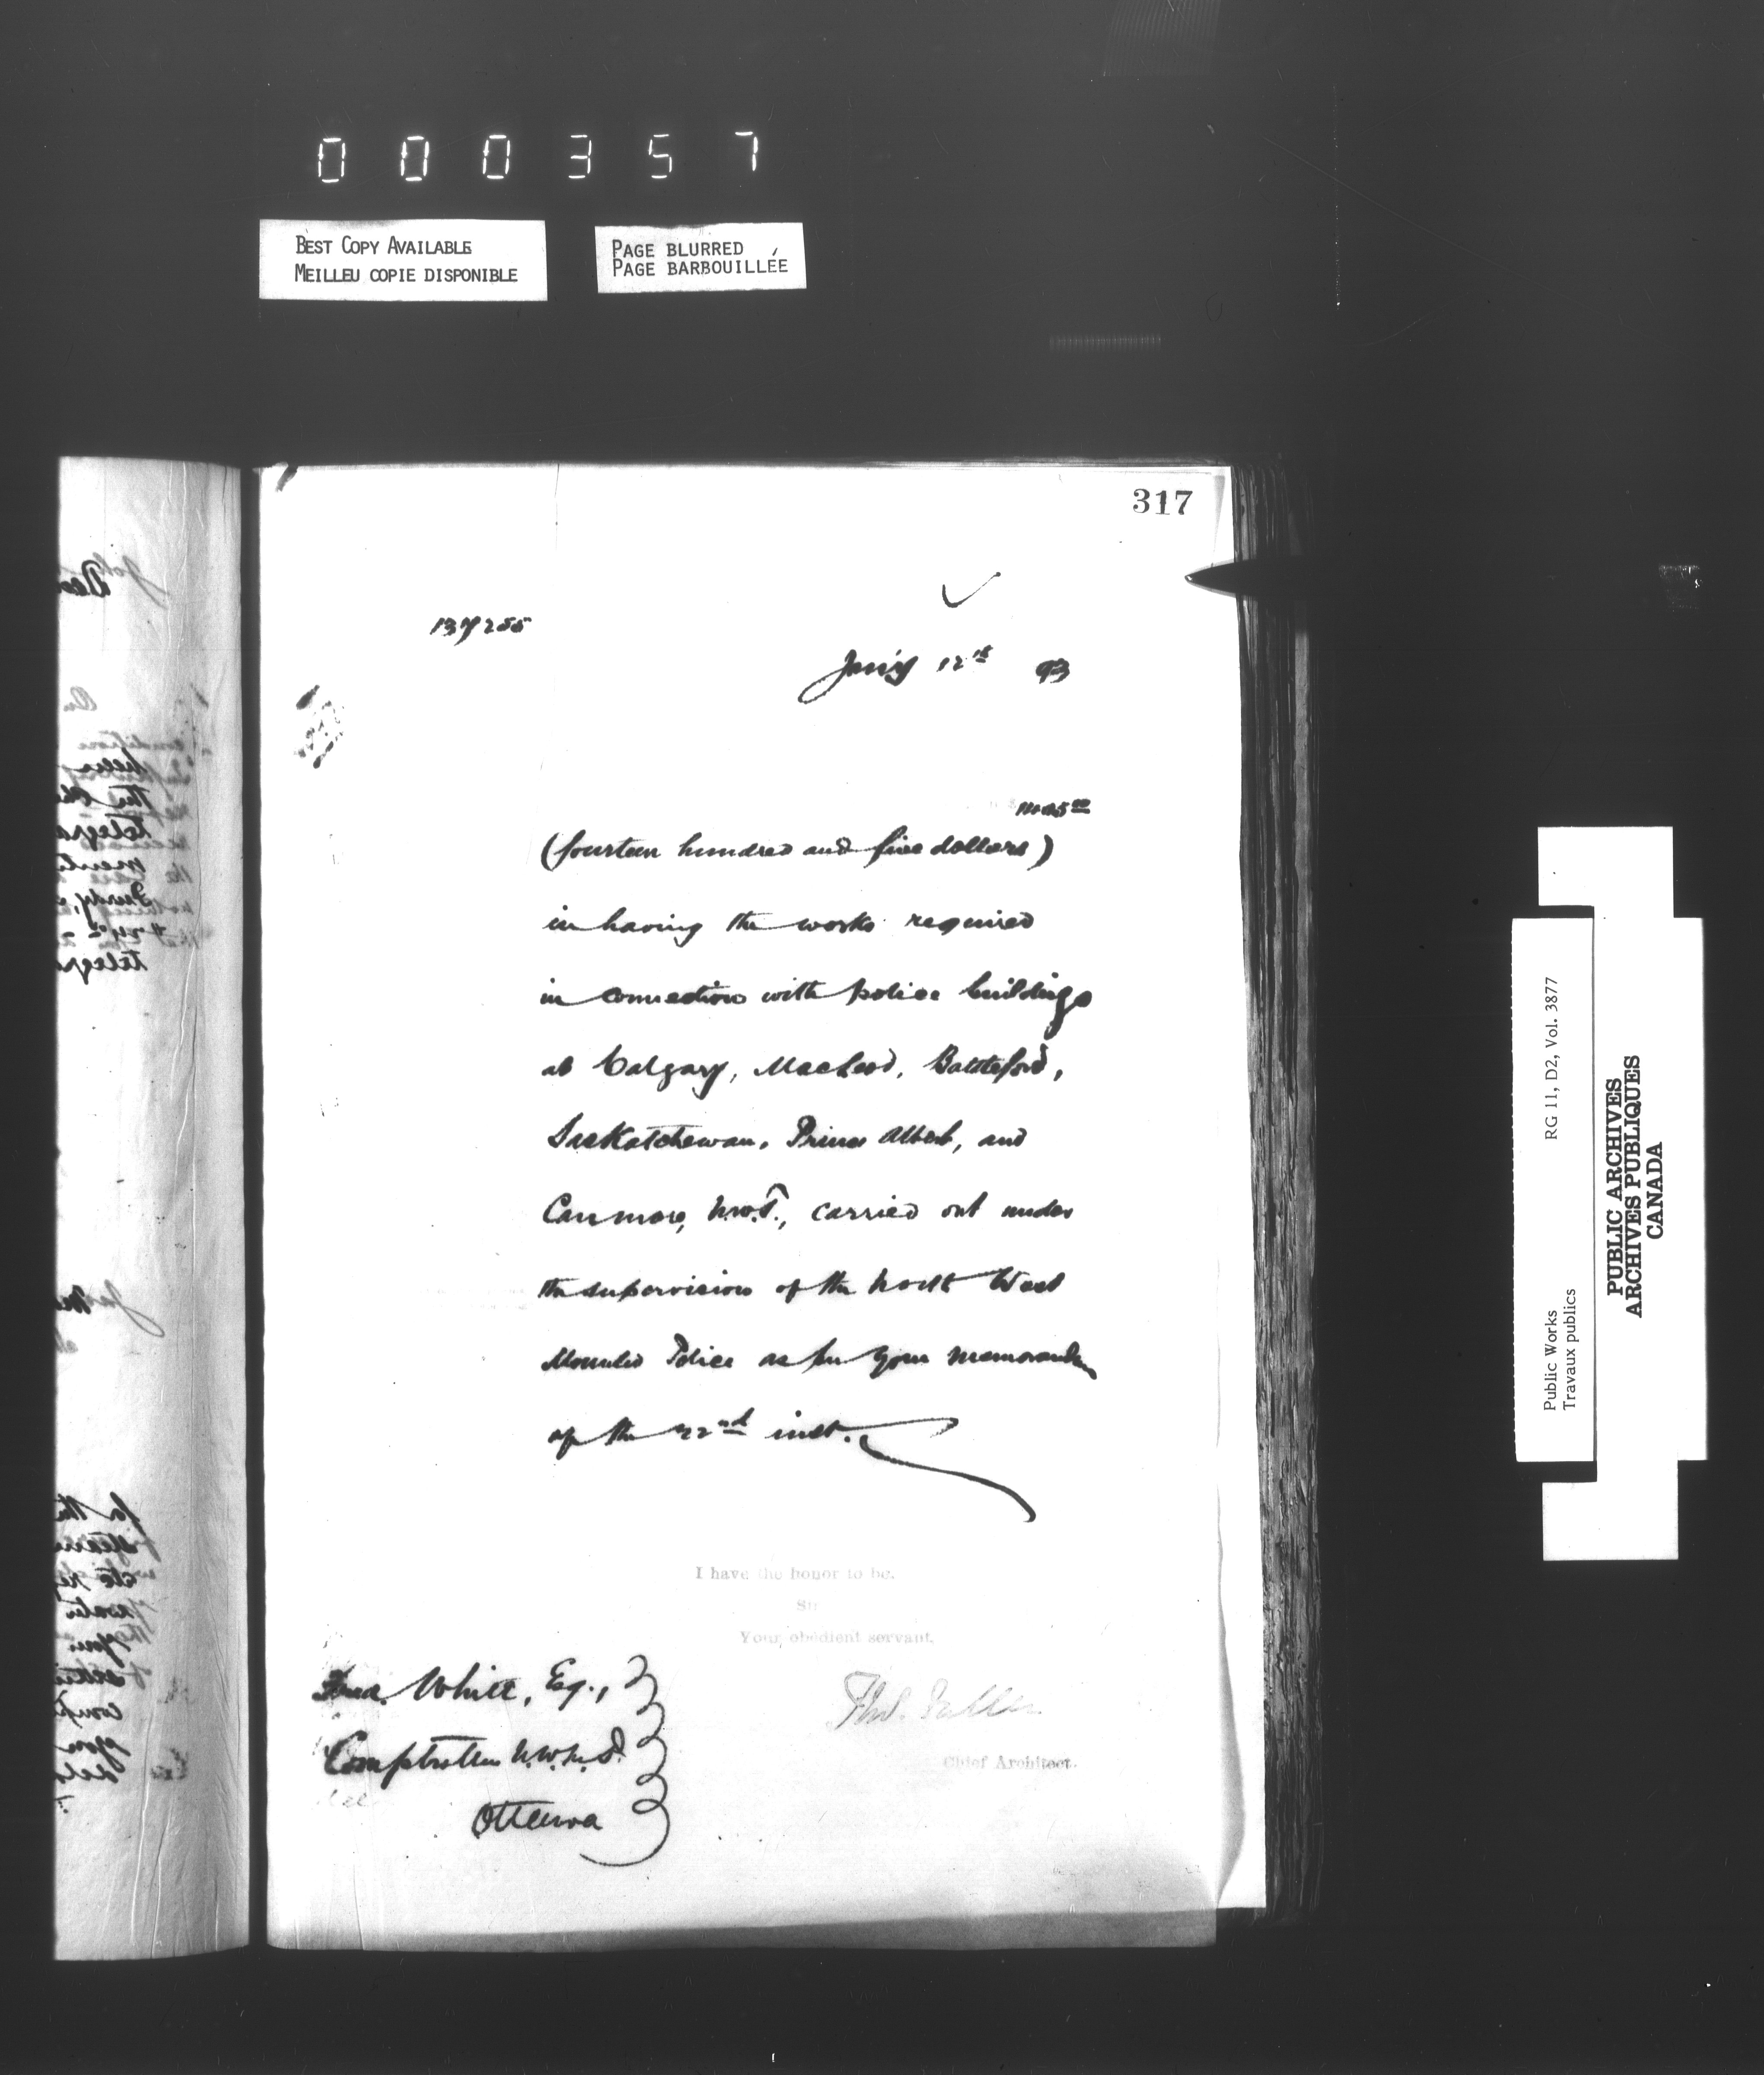 000357
BEST COPY AVAILABLE
MEILLEU COPIE DISPONIBLE
PAGE BLURRED
PAGE BARBOUILLÉE
317
137255
Jan'y 12th 93
1405 00
(fourteen hundred and five dollars)
in having the works required
in connection with police buildings
at Calgary, Macleod, Battleford,
Saskatchewan, Prince Albert, and
Canmore, N.W.T., carried out under
the supervision of the North West
Mounted Police as per your memorandum
of the 22nd inst.
I have the honor to be,
Sir
Your obedient servant,
Fred. White, Esq.,
Thos. Fuller
Comptroller N.W.M.P.
Chief Architect.
Ottawa
Public Works
Travaux publics
RG 11, D2, Vol. 3877
PUBLIC ARCHIVES
ARCHIVES PUBLIQUES
CANADA